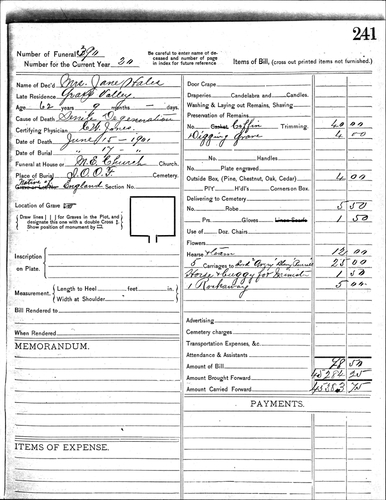 241
Number of Funeral
Number for the Current Year 20
Be carefully to enter name of de-
ceased and number of page
in index for future reference
Items of Bill, (cross out printed items not furnished.)
Name of Dec'd Mrs. Jane
Late Residence Grass Valley
Age 62 years 9 months — days.
Cause of Death Senile Degeneration
Certifying Physician C.W. Jones.
Date of Death June 15 - 1901
Date of Burial " 17 - "
Funeral at House or M.E. Church Church.
Place of Burial I.O.O.F. Cemetery.
Native of England Section No.
Location of Grave
Draw lines | | for Graves in the Plot, and
designate this one with a double Cross
Show position of monument by
Inscription
on Plate.
Measurement. Length to Heel feet in.
Width at Shoulder
Bill Rendered to
When Rendered
MEMORANDUM.
ITEMS OF EXPENSE.
Door Crape
Draperies Candelabra and Candles.
Washing & Laying out Remains, Shaving
Preservation of Remains
No. Casket Coffin Trimming. 40 00
Digging Grave 4 00
No. Handles
No. Plate engraved
Outside Box, (Pine, Chestnut, Oak, Cedar) 4 00
PLY H'dl's Corners on Box.
Delivering to
No. Robe 5 50
Prs. Gloves 1 50
Use of Doz. Chairs
Flowers
Hearse & Team 12 00
5 Carriages to 25 00
Horse & Buggy for 1 50
1 Rockaway 5 00
Advertising
Cemetery charges
Transportation Expenses, &c.
Attendance & Assistants
Amount of Bill 98 50
Amount Brought Forward 45284 25
Amount Carried Forward
PAYMENTS.